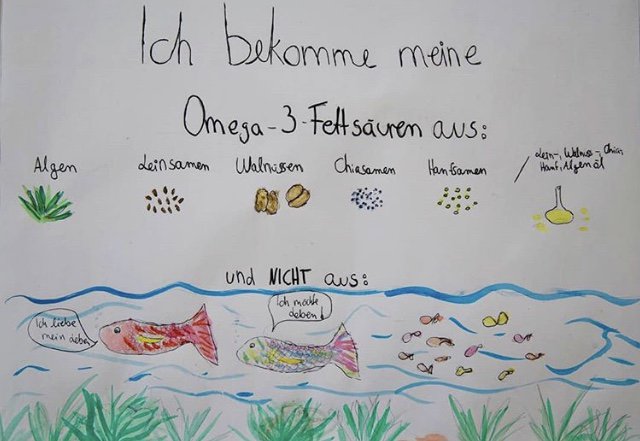 Ich bekomme meine
Omega-3-Fettsäuren aus:
Algen
Leinsamen
Walnüssen
Chiasamen
Hanfsamen
Lein-, Walnuss-, Chia-,
Hanf-, Algenöl
und NICHT aus:
Ich liebe
mein Leben
Ich möchte
leben!